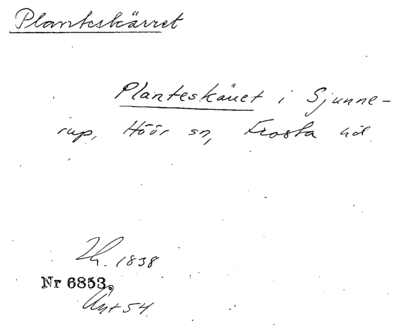 Plantskärret
Planteskäret i Sjunne-
rup, Höör sn, Frosta hd
Lh. 1838
Nr 6853.
Avt 54